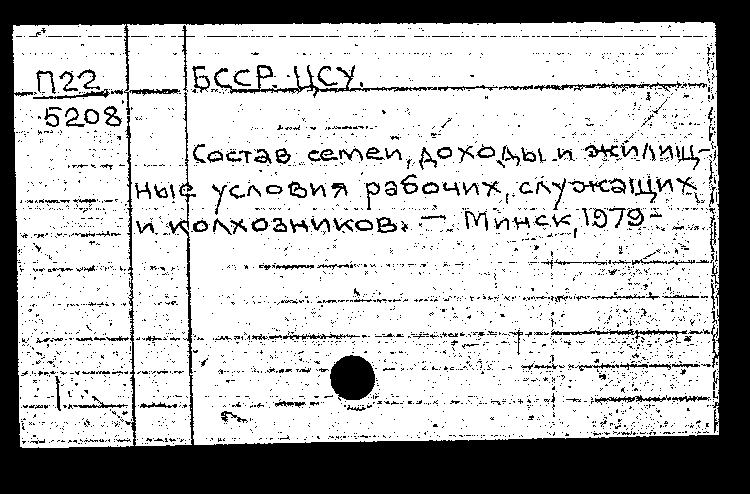 П22
5208
БССР. ЦСУ.
Состав семей, доходы и жилищ-
ные условия рабочих, служащих
и колхозников. — Минск, 1979-